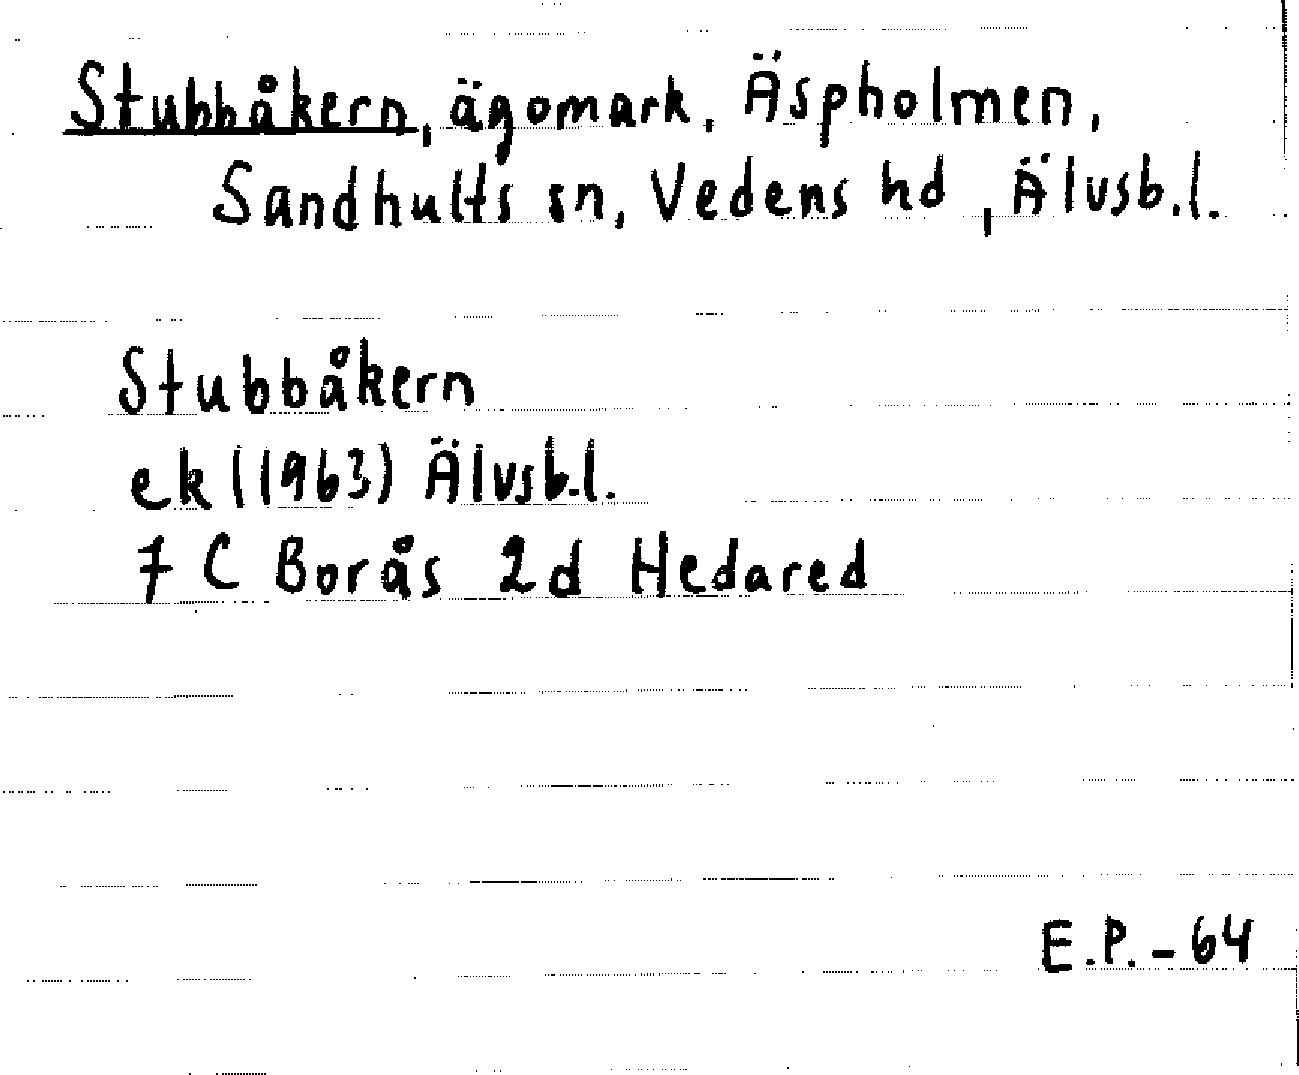 Stubbåkern, ägomark, Äspholmen,
Sandhults sn, Vedens hd, Älvsb.l.
Stubbåkern
ek (1963) Älvsb.l.
7 C Borås 2d Hedared
E.P.-64